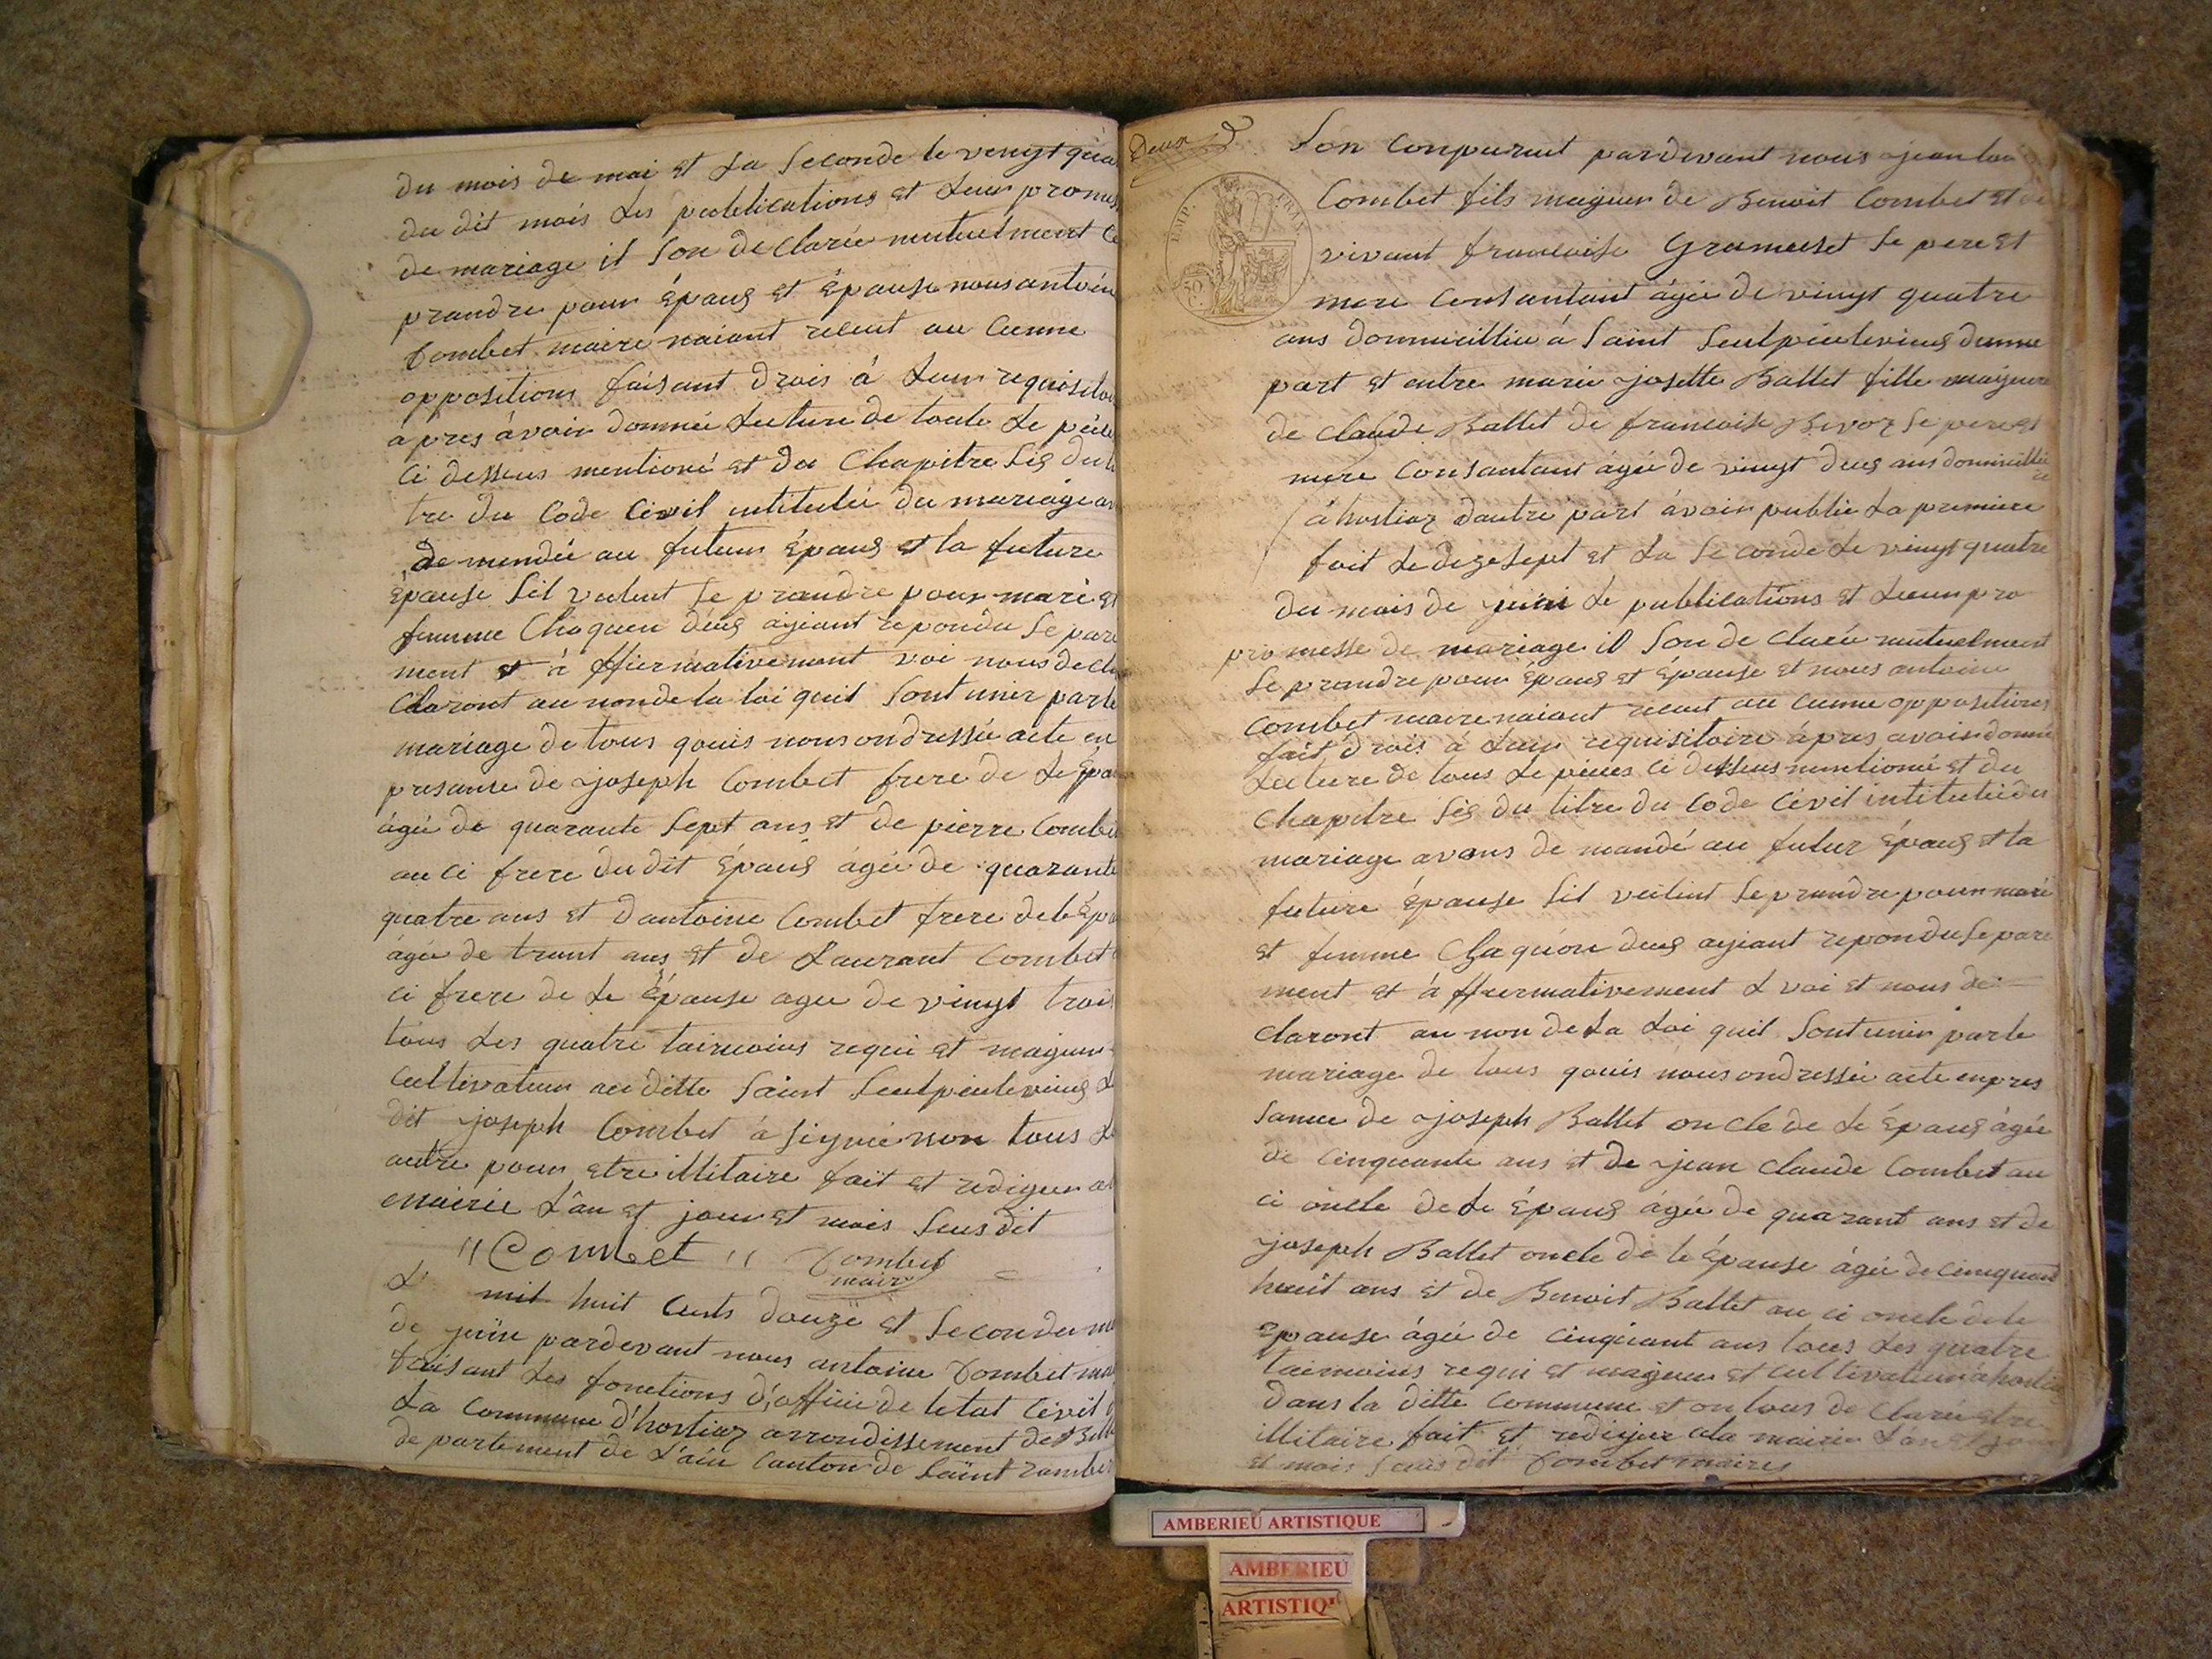 du mois de mai et La Seconde le vengt qua
du dit mois Les publications et Leur promes
de mariage il Son declarée mutuelment Ce
prandre pour épaus et épause nous antoin
Combet maire naiant recut au Cunne
oppositions faisant Drois à Leur requisitoi
apres àvoir donnée Lecture de toute Le piece
Ci dessus mentioné et du Chapitre Sis du ti
tre du Code Civil intitulée du mariage av
de mendée au futeur épaus et la future
épause Sil veulent Se prandre pour mari et
femme Chaquen deus ayiant repondu Se pare
ment et à ffiermativemont voi nous decla
Claront au non de la loi quil Sont unir par le
mariage de tous quois nous on dressée acte en
presance de joseph Combet frere de Le épau
àgée de quarante Sept ans et de pierre Combet
au ci frere du dit épaus àgée de quarante
quatre ans et dantoine Combet frere de le épau
àgée de trant ans et de Laurant Combet a
ci frere de Le épause agee de vingt trois
tous Les quatre taimoins requi et mageur
Cultivateur au ditte Saint Seulpicele vieus Le
dit joseph Combet à signée non tous Le
autre pour etre illitaire fait et rediger al
mairie L'an et jour et mois Sus dit
"Combet" Combet
maire
L mil huit Cents douze et Secondu mo
de juin pardevant nous antoine Combet mai
faisant Les fonctions d'officie de letat Civil
La Commune d'hostiaz arrondissement de Belle
de partement de L'ain Canton de Saint rambert
Deux
EMP. FRA.
50 C.
Son Conparut pardevant nous jean
Combet fils mageur de Benoit Combet et de
vivant francoise Gramuset Se pere et
mere Consantant àgée de vingt quatre
ans dommicillie à Saint Seulpicele vieus dunne
part et entre marie josette Ballet fille mageure
de Claude Ballet de francoise Bevoz Se pere et
mere Consantant àgée de vingt deus ans domicillie
à hostiaz dautre part àvoir publie La premiere
foit Le dizesept et La Seconde Le vingt quatre
du mois de juin Le publications et Leur pro
promesse de mariage il Son de Clarée mutuelment
Se prandre pour épaus et épause et nous antoine
Combet maire naiant recut au Cunne oppositions
fait Drois à Leur requisitoire àpres avoir donné
Lecture de tous Le pieces Ci dessus mentionné et du
Chapitre Sis du titre du Code Civil intitulée du
mariage avons de mandé au futur épaus et la
future épause Sil veulent Se prandre pour mari
et femme Chaquon deus ayiant repondu Se pare
ment et à ffermativement L voi et nous de
Claront au non de La Loi quil Sont unir par le
mariage de tous quois nous on dressée acte en pres
sance de joseph Ballet oncle de Le épaus àgée
de Cinquante ans et de jean Claude Combet au
ci oncle de Le épaus àgée de quarant ans et de
joseph Ballet oncle de le épause àgée de Cinquant
huit ans et de Benoit Ballet au ci oncle de le
épause àgée de Cinquant ans tous Les quatre
taimoins requi et mageur et Cultivateur à hostiaz
dans la ditte Commune et on tous de Clarée etre
illitaire fait et rediger ala mairie L'an et jour
et mois Sus dit Combet maire
AMBERIEU ARTISTIQUE
AMBERIEU
ARTISTIQ